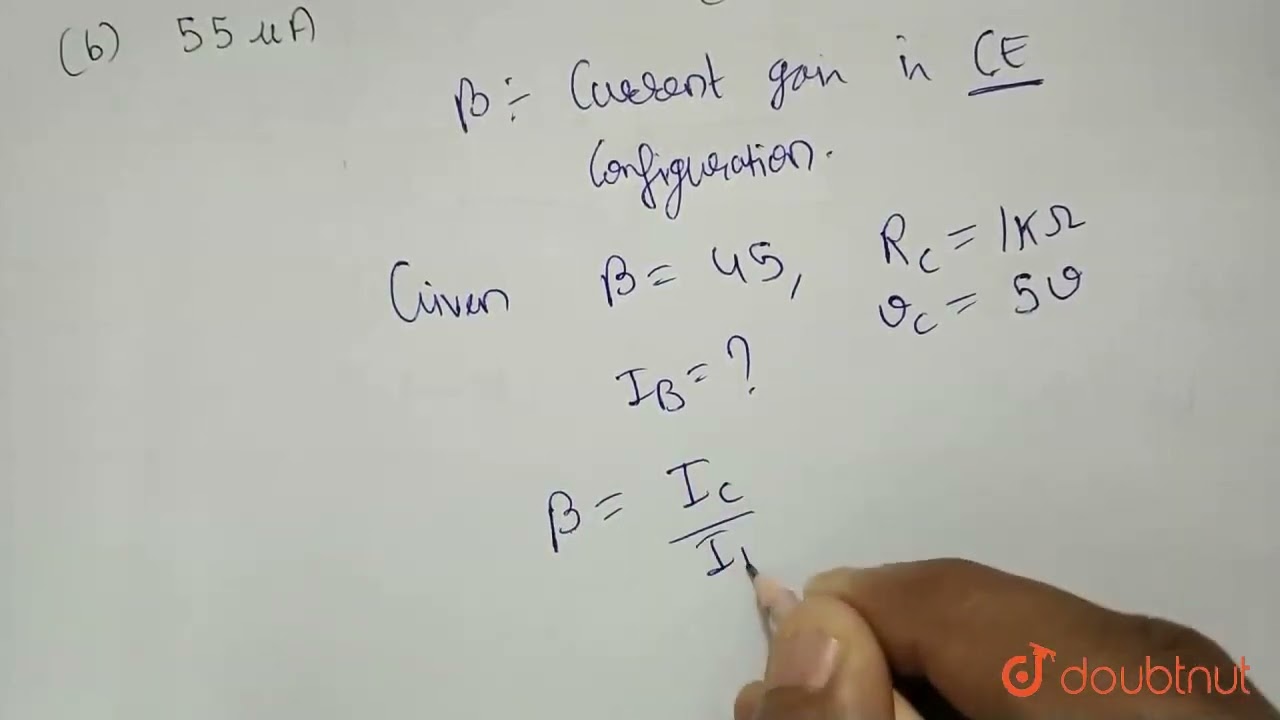 (b) 55 μA
β :- Current gain in CE
Configuration.
Given β = 45, R_C = 1KΩ
v_C = 5v
I_B = ?
β = I_C / I
doubtnut